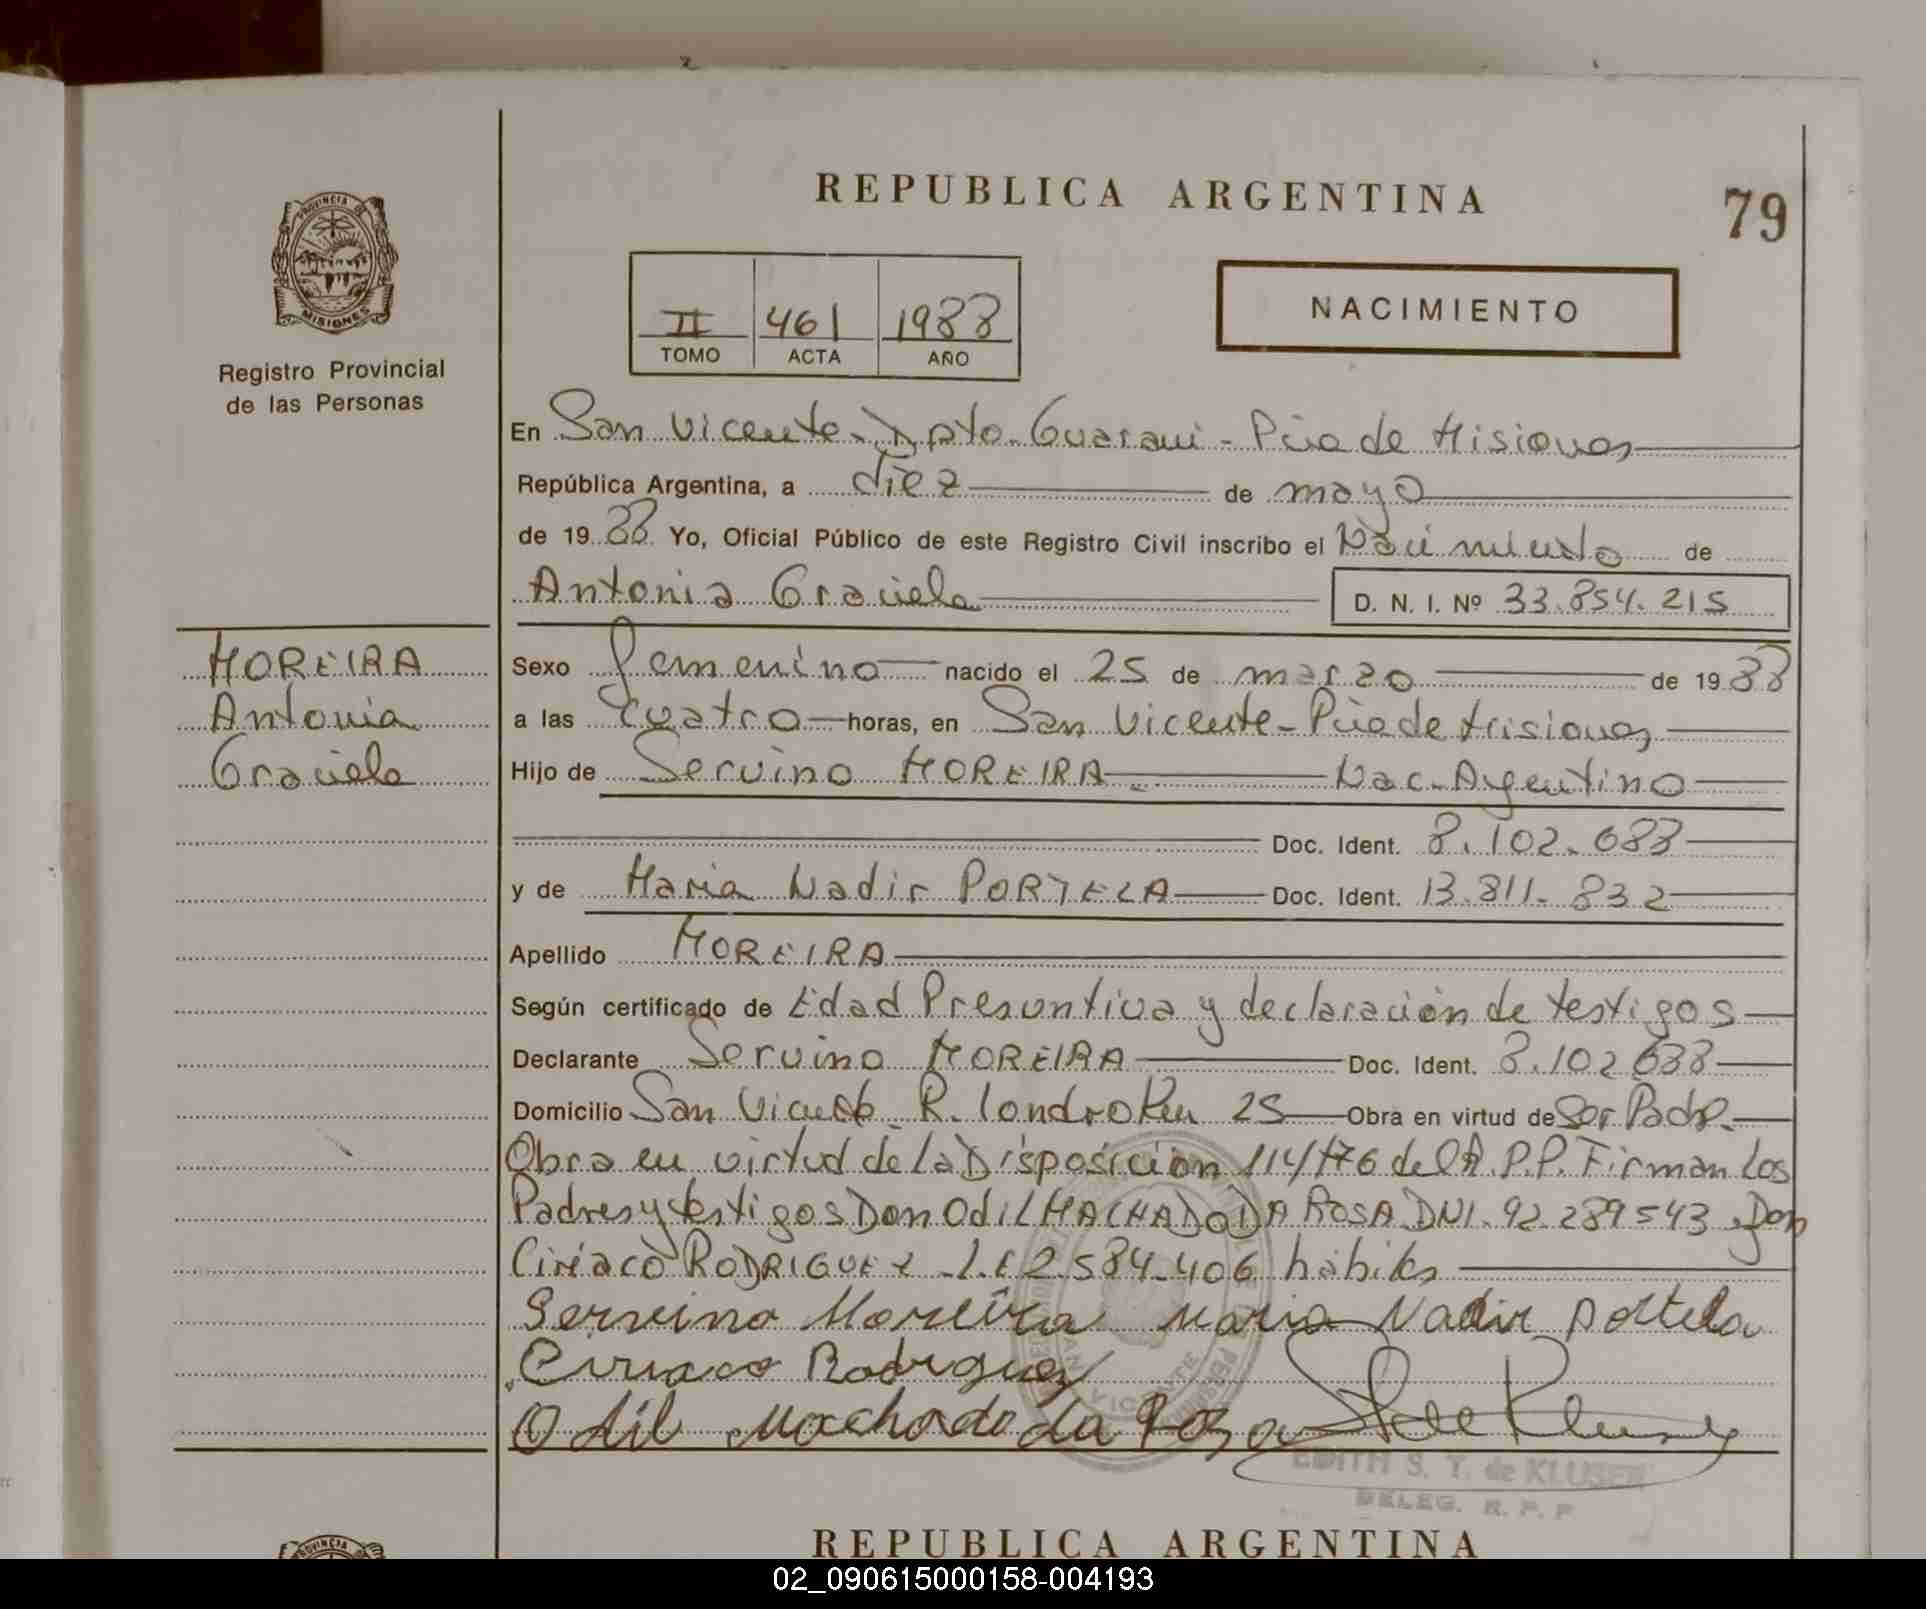 REPUBLICA ARGENTINA
79
PROVINCIA DE
MISIONES
Registro Provincial
de las Personas
II 461 1988
TOMO ACTA AÑO
NACIMIENTO
En San Vicente - Dpto. Guarani - Pcia de Misiones
República Argentina, a diez de mayo
de 1988 Yo, Oficial Público de este Registro Civil inscribo el Nacimiento de
Antonia Graciela D. N. I. Nº 33.854.215
MOREIRA
Antonia
Graciela
Sexo femenino nacido el 25 de marzo de 1988
a las cuatro horas, en San Vicente - Pcia de Misiones
Hijo de Servino MOREIRA Nac. Argentino
Doc. Ident. 8.102.688
y de Maria Nadir PORTELA Doc. Ident. 13.811.832
Apellido MOREIRA
Según certificado de Edad Presuntiva y declaración de testigos
Declarante Servino MOREIRA Doc. Ident. 8.102.688
Domicilio San Vicente R. 25 Obra en virtud de Ser Padre.
Obra en virtud de la Disposición 114/76 del R.P.P. Firman los
Padres y testigos Don Odil MACHADO DA ROSA DNI. 92.289543, Don
Ciriaco RODRIGUEZ - L.E 2.584.406 habiles
Servino Moreira Maria Nadir Portela
Ciriaco Rodriguez
Odil Machado da Rosa
EDITH S. T. de KLUSEN
DELEG. R. P. P
REPUBLICA ARGENTINA
PROVINCIA
02_090615000158-004193